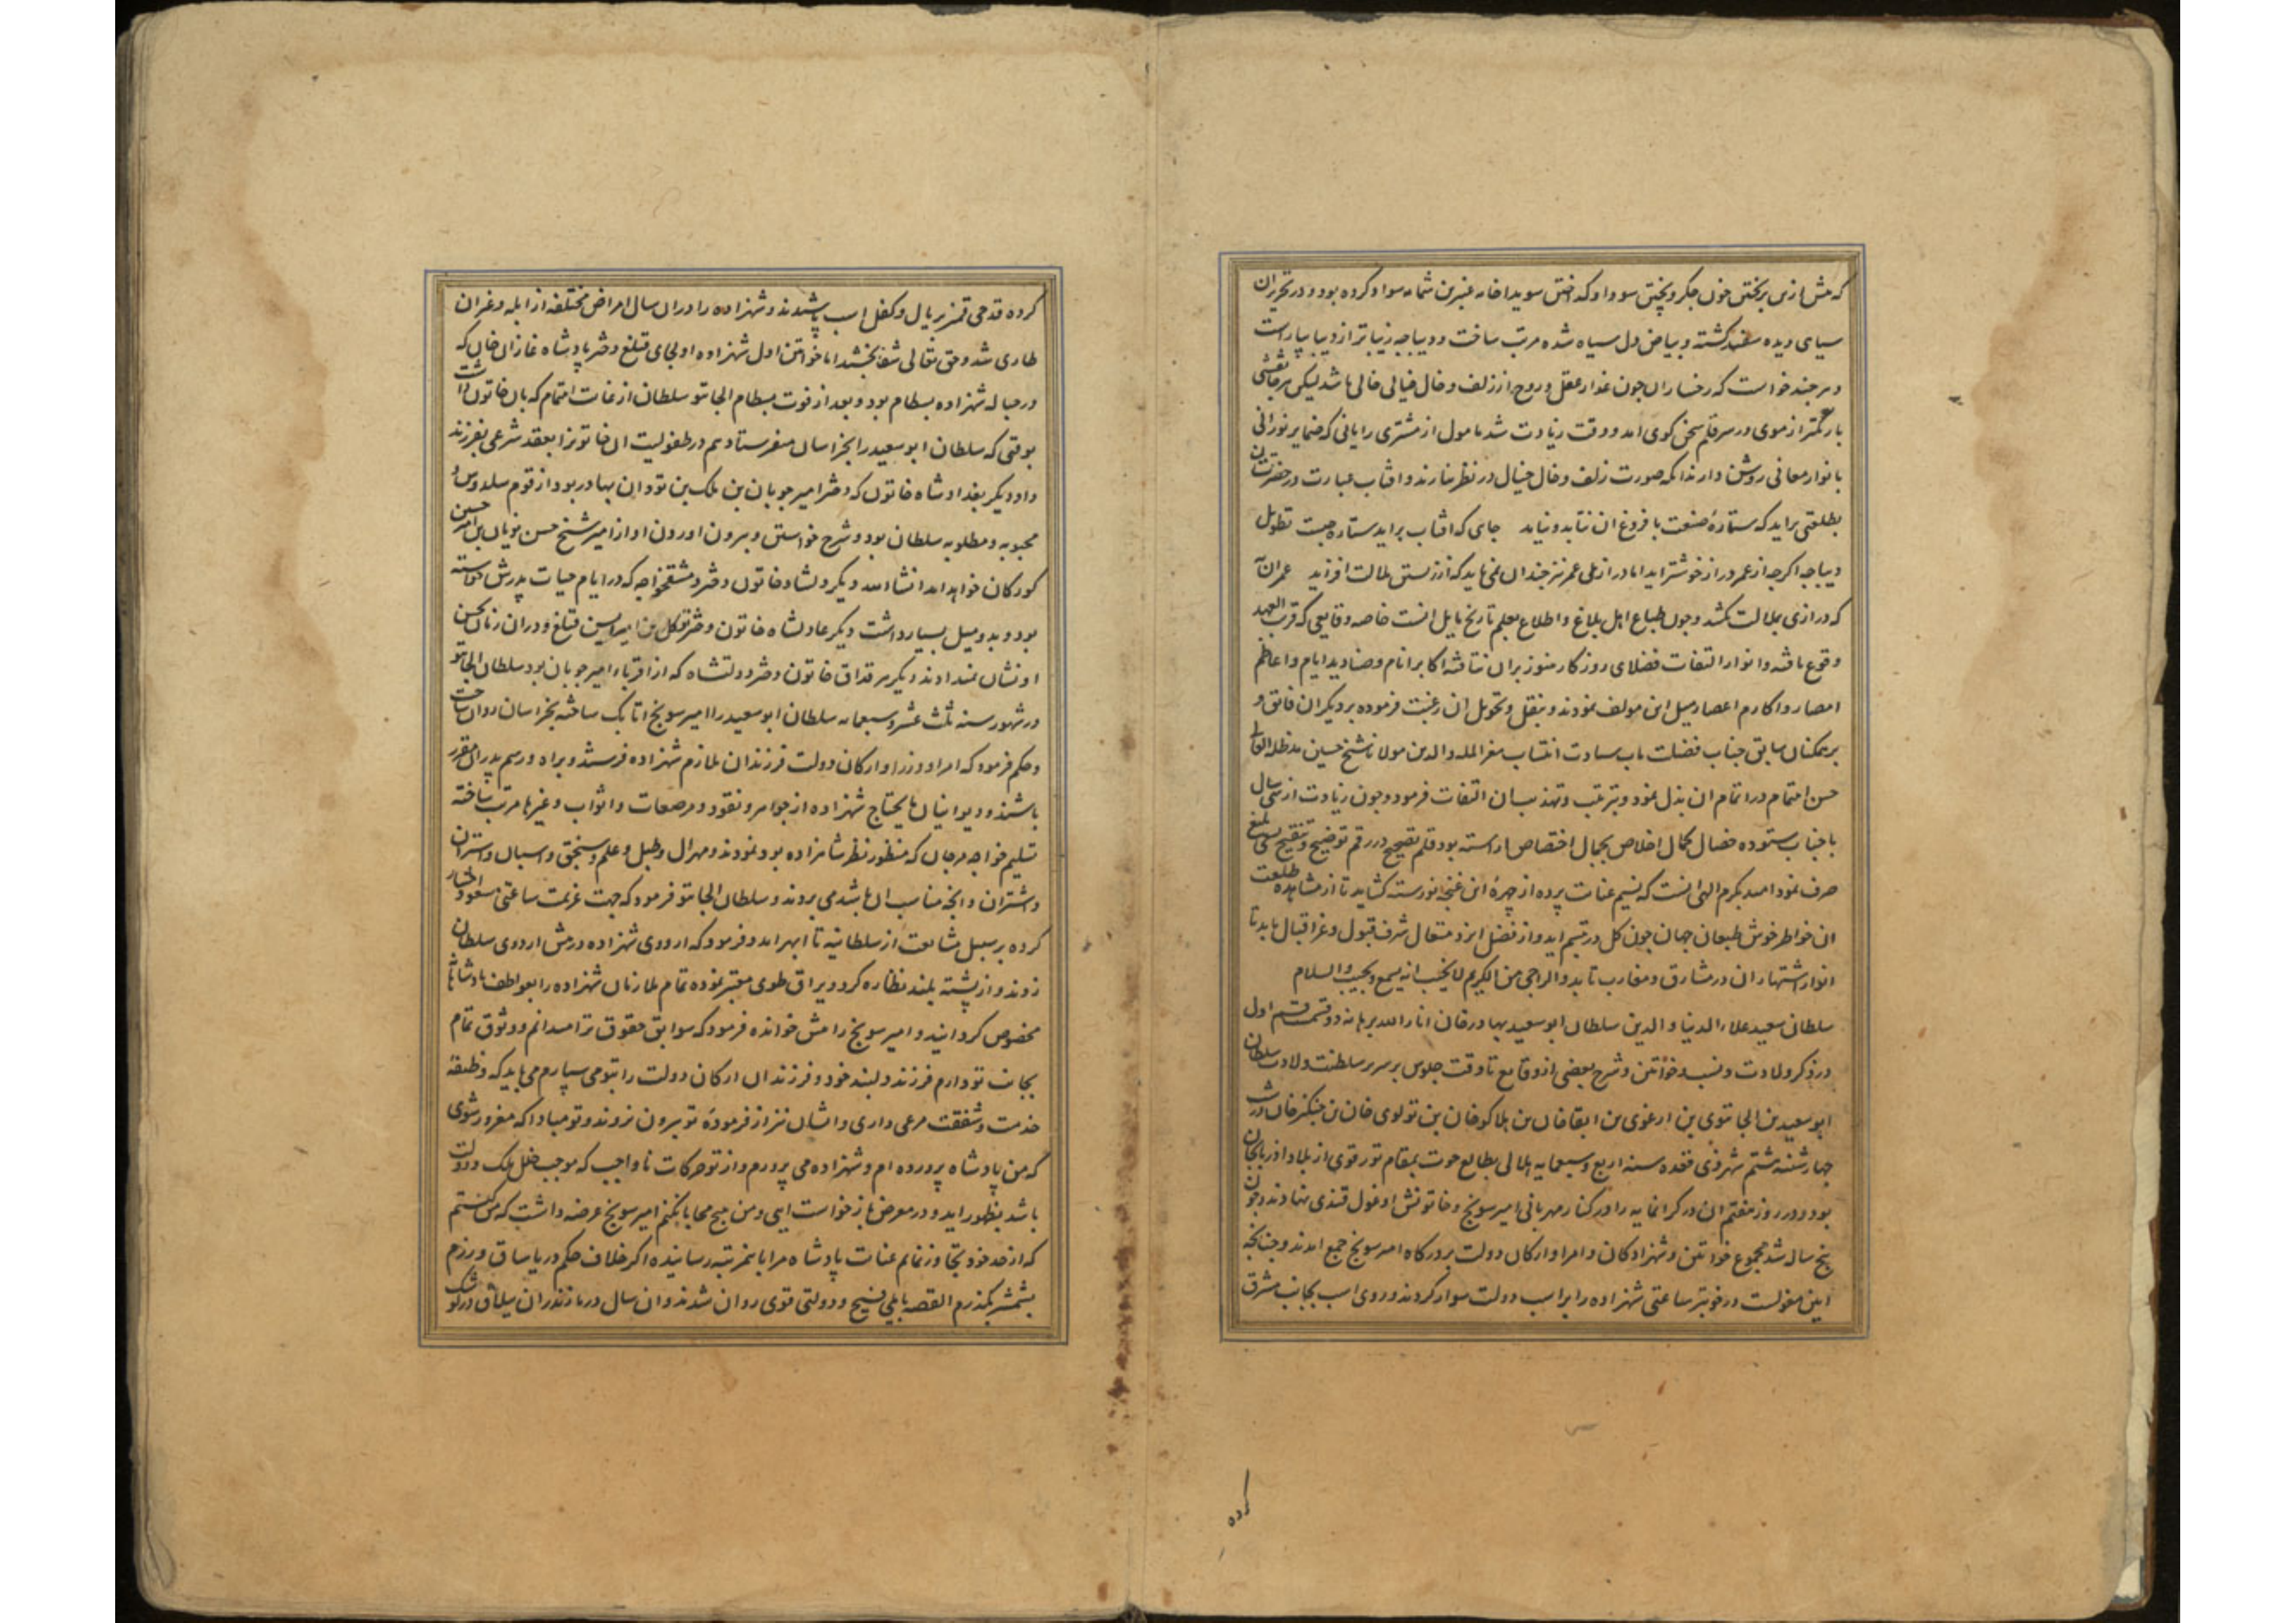 که پیش ازین بریختن خون جگر و پختن سودا و گداختن سویدا خامه عنبرین شمامه سواد کرده بود و در تحریر ان
سیاهی دیده سفید کشته و بیاض دل سیاه شده مرتب ساخت و دیباجه زیباتر از دیبا بیاراست
و هر چند خواست که رخسار ان چون عذار عقل و روح از زلف و خال خیالی خالی باشد لیکن هر جا نقشی
باریکتر از موی در سر قلم سخن کوی امد و وقت زیادت شد مامول از مشتری رایانی که ضمایر نورانی
بانوار معانی روشن دارند انکه صورت زلف و خال خیال در نظر نیارند و افتاب عبارت در حضرتشان
بطلعتی براید که ستارهٔ صنعت با فروغ ان نتابد و نیاید جای که افتاب براید ستاره چیست تطویل
دیباجه اکرچه از عمر دراز خوشتر اید اما درازی عمر نیز چندان می باید که از زیستن ملالت افزاید عمر ان
که درازی بملالت نکشد و چون طباع اهل بلاغ و اطلاع بعلم تاریخ مایل است خاصه وقایعی که قریب العهد
وقوع یافته و انوار التفات فضلای روزکار هنوز بر ان نتافته اکابر انام و صنادید ایام و اعاظم
امصار و اکارم اعصار میل این مولف نمودند و بنقل و تحویل ان رغبت فرموده بر دیکران فایق و
بر همکنان سابق جناب فضیلت ماب سیادت انتساب معز المله والدین مولانا شیخ حسین مد ظله العالی
حسن اهتمام در اتمام ان بذل نمود و بترغیب و تهذیب ان التفات فرمود و چون زیادت از سی سال
با جناب ستوده خصال بکمال اخلاص بجمال اختصاص اراسته بود قلم تصحیح در رقم توضیح و تنقیح سعی بلیغ
صرف نمود امید بکرم الهی انست که نسیم عنایت پرده از چهرهٔ این غنچه نورسته کشاید تا از مشاهده طلعت
ان خواطر خوش طبعان جهان چون کل در تبسم اید و از فضل ایزد متعال شرف قبول و عز اقبال یابد تا
انوار اشتهار ان در مشارق و مغارب تابد والراجی من الکریم لا یخیب انه یسمع و یجیب والسلام
سلطان سعید علاء الدنیا والدین سلطان ابوسعید بهادرخان انار الله برهانه دو قسمت قسم اول
در ذکر ولادت و نسب و خواتین و شرح بعضی از وقایع تا وقت جلوس بر سریر سلطنت ولادت سلطان
ابوسعید بن الجایتوی بن ارغون بن ابقاخان بن هلاکوخان بن تولوی خان بن چنکیزخان در شب
چهارشنبه هشتم شهر ذی قعده سنه اربع و سبعمایه هلالی بطالع حوت بمقام تورقوی از بلاد اذربایجان
بود و در روز هفتم ان در کرانمایه را در کنار مهربانی امیر سونج و خاتونش اوغول قندی نهادند و چون
پنج ساله شد مجموع خواتین و شهزادکان و امرا و ارکان دولت بر درکاه امیر سونج جمع امدند و چنانچه
ایین مغولست در خوبتر ساعتی شهزاده را بر اسب دولت سوار کردند و روی اسب بجانب مشرق
کرده
کرده قدحی قمز بر یال و کفل اسب پاشیدند و شهزاده را در ان سال امراض مختلفه از ابله و غیر ان
طاری شد و حق تعالی شفا بخشید اما خواتین اول شهزاده اولجای قتلغ دختر پادشاه غازان خان که
در حباله شهزاده بسطام بود و بعد از فوت بسطام الجایتو سلطان از غایت اهتمام که بان خاتون داشت
بوقتی که سلطان ابوسعید را بخراسان میفرستاد هم در طفولیت ان خاتون را بعقد شرعی بفرزند
داد دیکر بغداد شاه خاتون که دختر امیر چوبان بن ملک بن تودان بهادر بود از قوم سلدوس و
محبوبه و مطلوبه سلطان بود و شرح خواستن و بیرون اوردن او از امیر شیخ حسن نویان بن امیر حسین
کورکان خواهد امد انشا الله دیکر دلشاد خاتون دختر دمشق خواجه که در ایام حیات پدرش خواسته
بود و بدو میل بسیار داشت دیکر عادلشاه خاتون دختر توکل بن امیر ایسن قتلغ و در ان زمان بحسن
او نشان نمیدادند دیکر سرقداق خاتون دختر دولتشاه که از اقرباء امیر چوبان بود سلطان الجایتو
در شهور سنه ثلث عشر و سبعمایه سلطان ابوسعید را امیر سونج اتابک ساخته بخراسان روان ساخت
و حکم فرمود که امرا و وزرا و ارکان دولت فرزندان ملازم شهزاده فرستند و براه و رسم پدران مقرر
باشند و دیوانیان مایحتاج شهزاده از جواهر و نقود و مرصعات و اثواب و غیرها مرتب ساخته
تسلیم خواجه مرجان که منظور نظر شاهزاده بود نمودند و مهران و طبل و علم و سنجق و اسبان و استران
و اشتران و انچه مناسب ان باشد می بردند و سلطان الجایتو فرمود که جهت عزیمت ساعتی مسعود اختیار
کرده بر سبیل مشایعت از سلطانیه تا ابهر امد و فرمود که اردوی شهزاده در پیش اردوی سلطان
زدند و از پشته بلند نظاره کرد و یراق طوی معتبر نموده تمام ملازمان شهزاده را بعواطف پادشاهانه
مخصوص کردانید و امیر سونج را پیش خوانده فرمود که سوابق حقوق ترا میدانم و وثوق تمام
بجانب تو دارم فرزند دلبند خود و فرزندان ارکان دولت را بتو می سپارم می باید که وظیفهٔ
خدمت و شفقت مرعی داری و ایشان نیز از فرمودهٔ تو بیرون نروند و تو مبادا که مغرور شوی
که من پادشاه پرورده ام و شهزاده می پرورم و از تو حرکات ناواجب که موجب خلل ملک و دولت
باشد بظهور اید و در معرض بازخواست ایی و من هیچ محابا نکنم امیر سونج عرضه داشت که من کیستم
که از حد خود تجاوز نمایم عنایت پادشاه مرا باین مرتبه رسانیده اکر خلاف حکم در یاساق ورزم
بشمشیر بکذرم القصه باملی فسیح و دولتی قوی روان شدند و ان سال در مازندران ییلاق